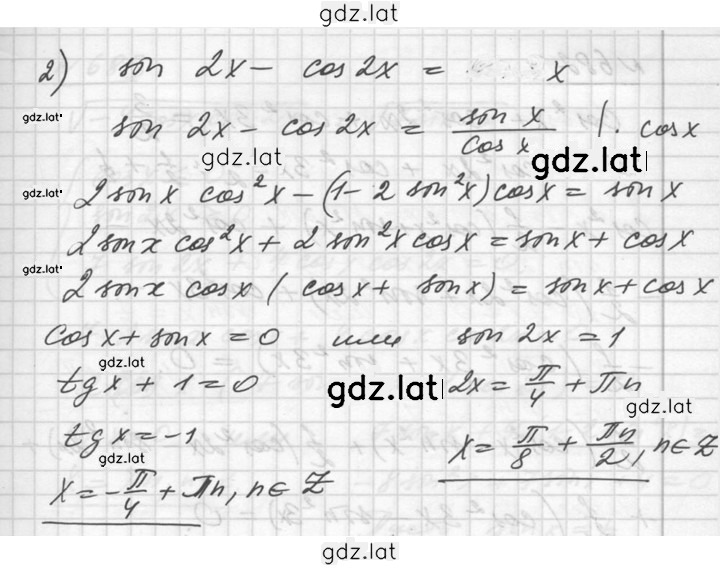 gdz.lat
2) sin 2x - cos 2x = x
gdz.lat
sin 2x - cos 2x = sin x / cos x | · cos x
gdz.lat
gdz.lat
gdz.lat
2 sin x cos²x - (1 - 2 sin²x) cos x = sin x
2 sin x cos²x + 2 sin²x cos x = sin x + cos x
gdz.lat
2 sin x cos x (cos x + sin x) = sin x + cos x
cos x + sin x = 0 или sin 2x = 1
gdz.lat
tg x + 1 = 0 2x = π/4 + πn
gdz.lat
gdz.lat
tg x = -1 x = π/8 + πn/2, n ∈ Z
gdz.lat
x = -π/4 + πn, n ∈ Z
gdz.lat